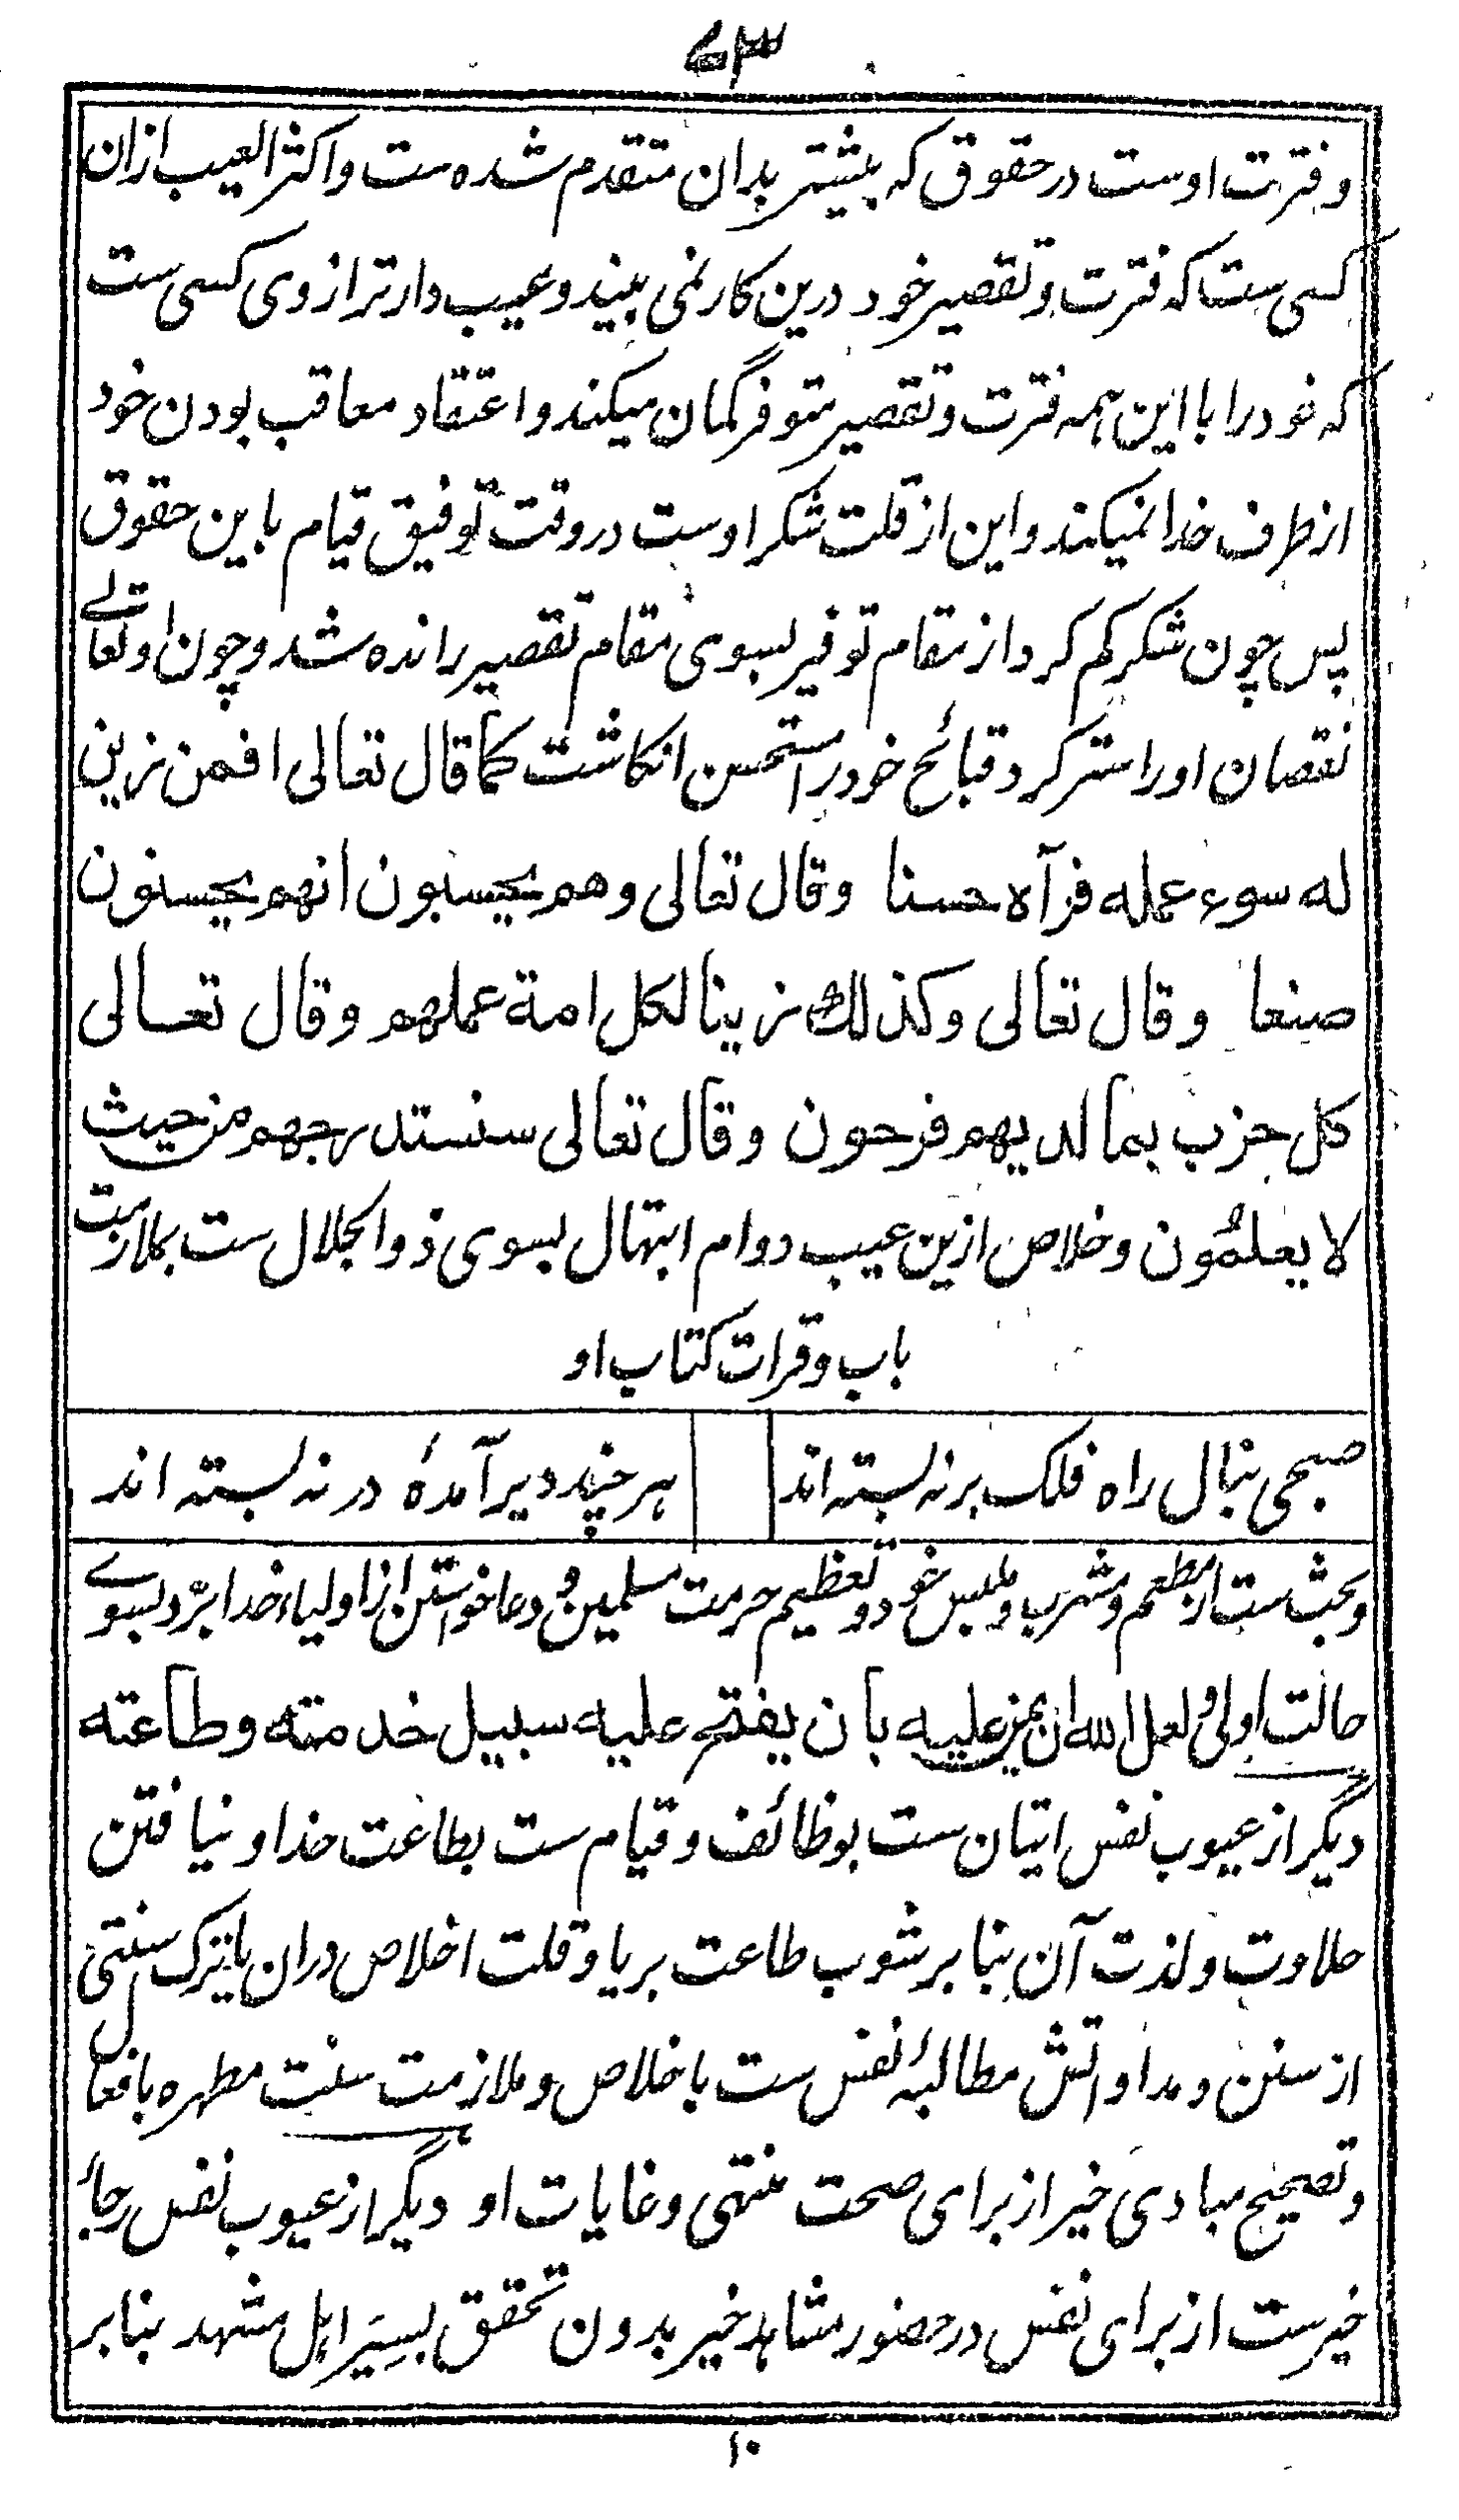 ۷۳
و فترت اوست در حقوق که پیشتر بدان متقدم شده ست و اکثر العیب ازان
کسی ست که فترت و تقصیر خود درین کار نمی بیند و عیب دار تر از وی کسی ست
که خود را با این همه فترت و تقصیر متوفر گمان میکند و اعتقاد معاقب بودن خود
از طرف خدا نمیکند و این از قلت شکر اوست در وقت توفیق قیام باین حقوق
پس چون شکر کم کرد از مقام توفیر بسوی مقام تقصیر رانده شد و چون او تعالے
نقصان او را ستر کرد قبائح خود را مستحسن انکاشت کما قال تعالی افمن زین
له سوء عمله فرآه حسنا وقال تعالی وهم یحسبون انهم یحسنون
صنعا وقال تعالی وکذلك زینا لکل امة عملهم وقال تعالی
کل حزب بما لدیهم فرحون وقال تعالی سنستدرجهم من حیث
لا یعلمُون و خلاص ازین عیب دوام ابتهال بسوی ذو الجلال ست بملازمت
باب و قرات کتاب او
صبحی بنال راه فلک بر نه بسته اند هر چند دیر آمدۀ در نه بسته اند
و بحث ست از مطعم و مشرب و ملبس خود و تعظیم حرمت مسلمین و دعا خواستن از اولیاء خدا برّد بسوے
حالت اولی و لعل الله ان یمن علیه بان یفتح علیه سبیل خدمته وطاعته
دیگر از عیوب نفس اتیان ست بوظائف و قیام ست بطاعت خدا و نیافتن
حلاوت و لذت آن بنابر شوب طاعت بریا و قلت اخلاص دران یا ترک سنتی
از سنن و مداواتش مطالبۀ نفس ست باخلاص و ملازمت سنت مطهره بافعال
و تصحیح مبادی خیر از برای صحت منتهی و غایات او دیگر از عیوب نفس رجاء
خیر ست از برای نفس در حضور مشاهد خیر بدون تحقق بسِیَر اهل مشهد بنابر
۱۰